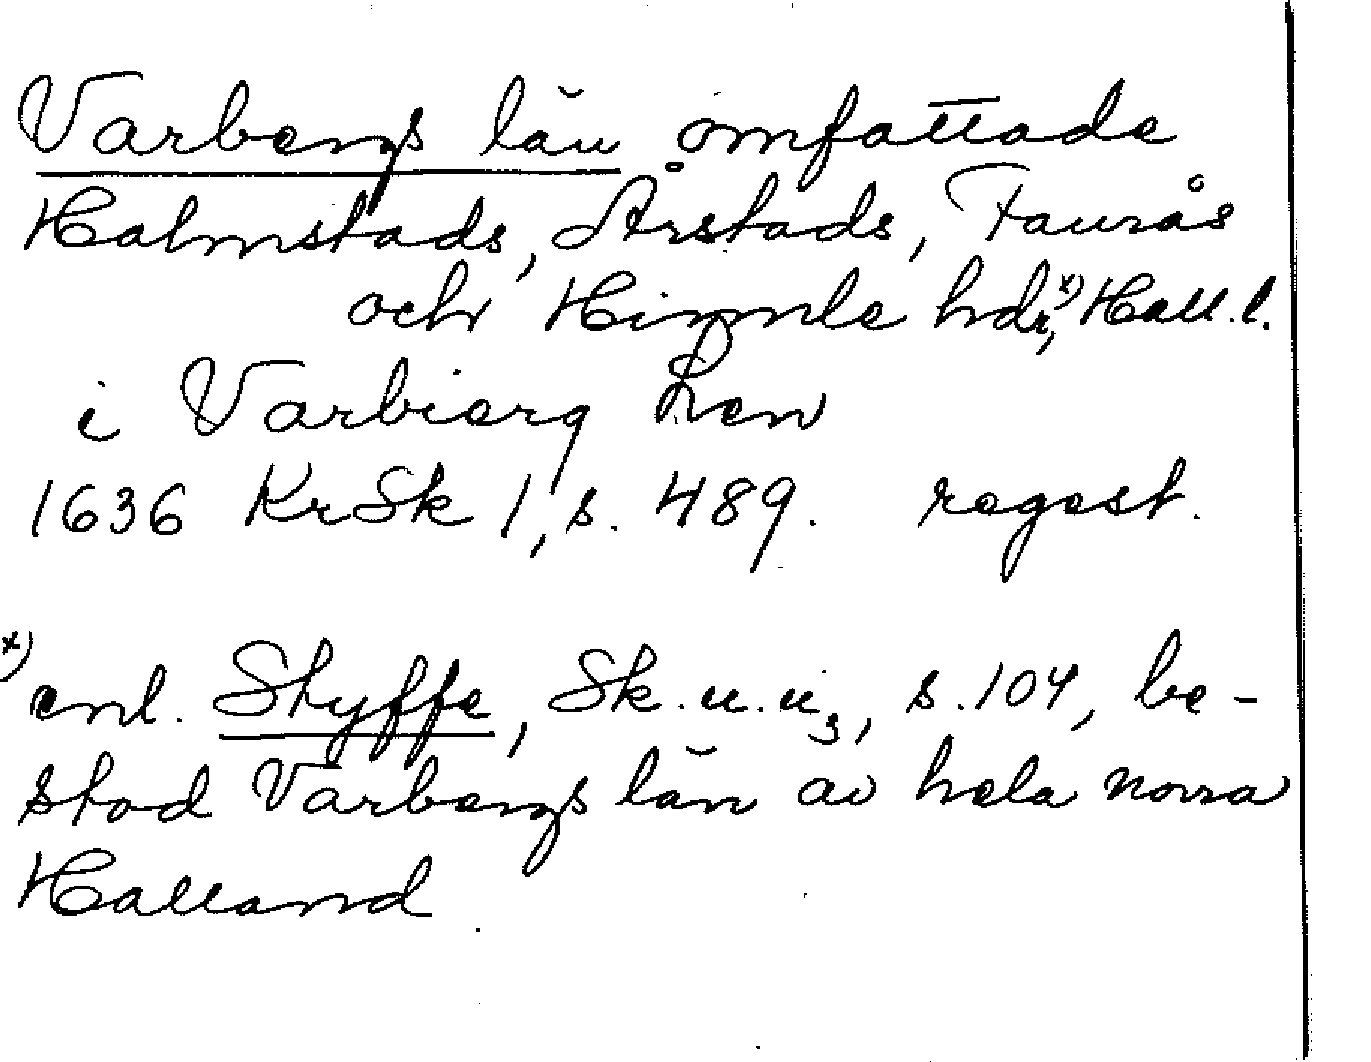 Varbergs län omfattade
Halmstads, Årstads, Faurås
och Himle hdr,x) Hall. l.
i Varbierg Len
1636 KrSk 1, s. 489. regest.
x) enl. Styffe, Sk. u. u3, s. 104, be-
stod Varbergs län av hela norra
Halland